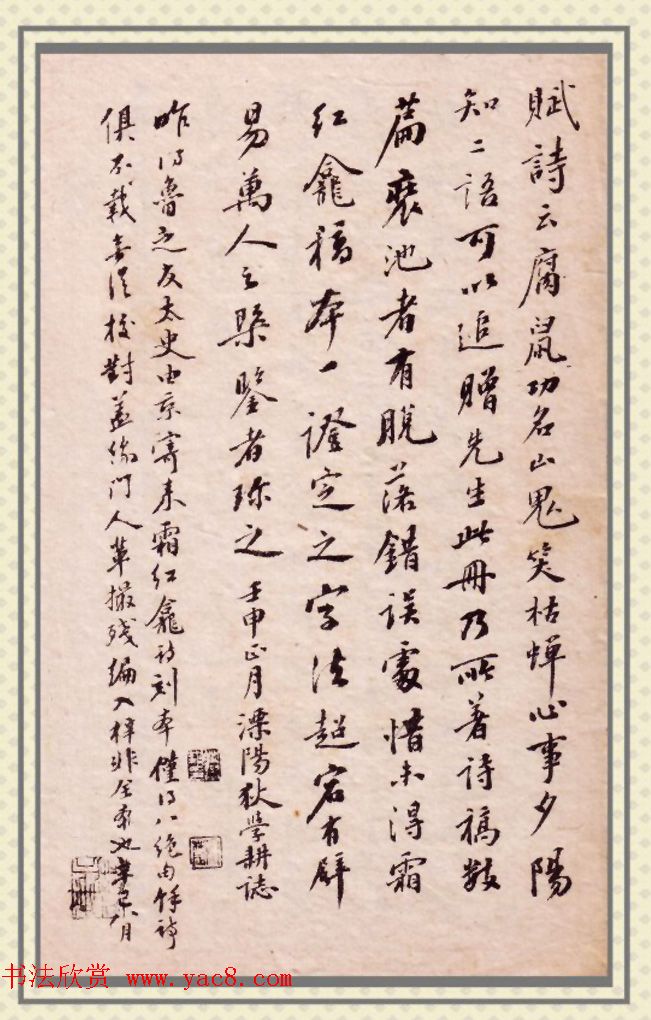 賦詩云腐鼠功名山鬼笑枯蟬心事夕陽
知二語可以追贈先生此冊乃所著詩稿數
篇裝池者有脫落錯誤處惜未得霜
紅龕稿本一證定之字法超宕有辟
易萬人之槩鑒者珍之壬申正月溧陽狄學耕誌
昨得魯之友太史由京寄来霜紅龕詩刻本僅得八絕句餘詩
俱不載無從校對蓋係門人輩撮殘編入梓非全本也辛月
书法欣赏 www.yac8.com